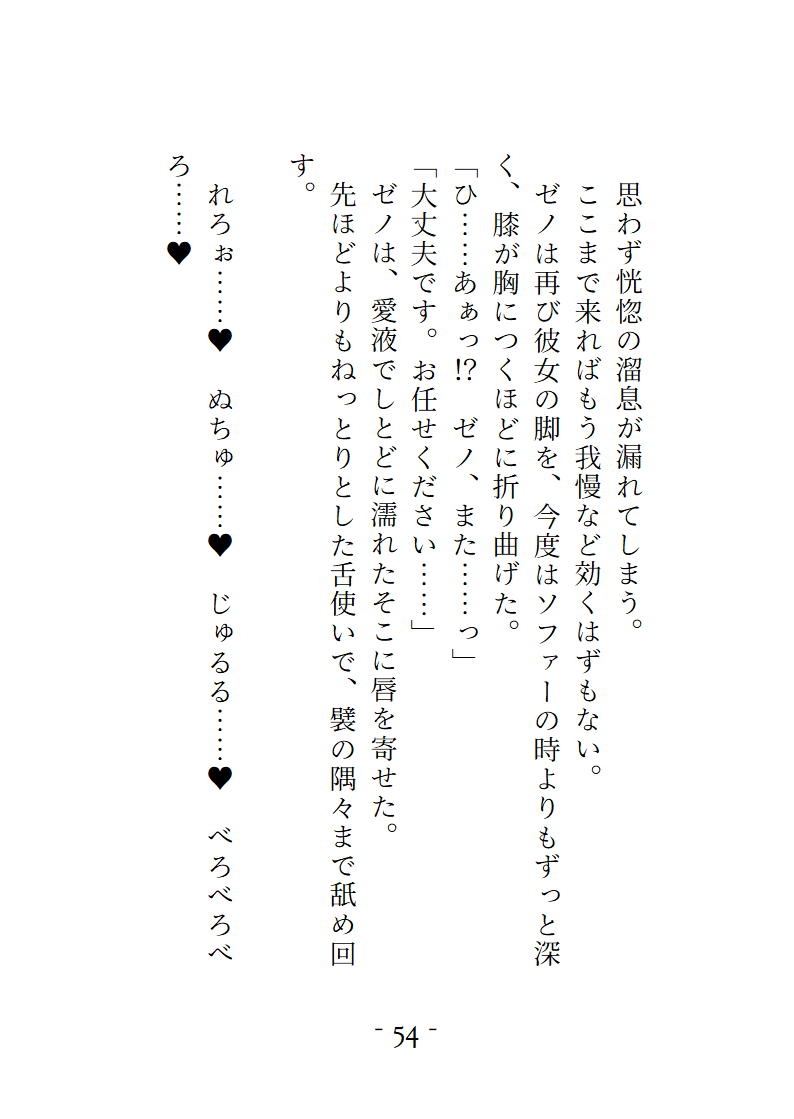 思わず恍惚の溜息が漏れてしまう。
　ここまで来ればもう我慢など効くはずもない。
　ゼノは再び彼女の脚を、今度はソファーの時よりもずっと深
く、膝が胸につくほどに折り曲げた。
「ひ……あぁっ⁉　ゼノ、また……っ」
「大丈夫です。お任せください……」
　ゼノは、愛液でしとどに濡れたそこに唇を寄せた。
　先ほどよりもねっとりとした舌使いで、襞の隅々まで舐め回
す。
　れろぉ……♥　ぬちゅ……♥　じゅるる……♥　べろべろべ
ろ……♥
- 54 -